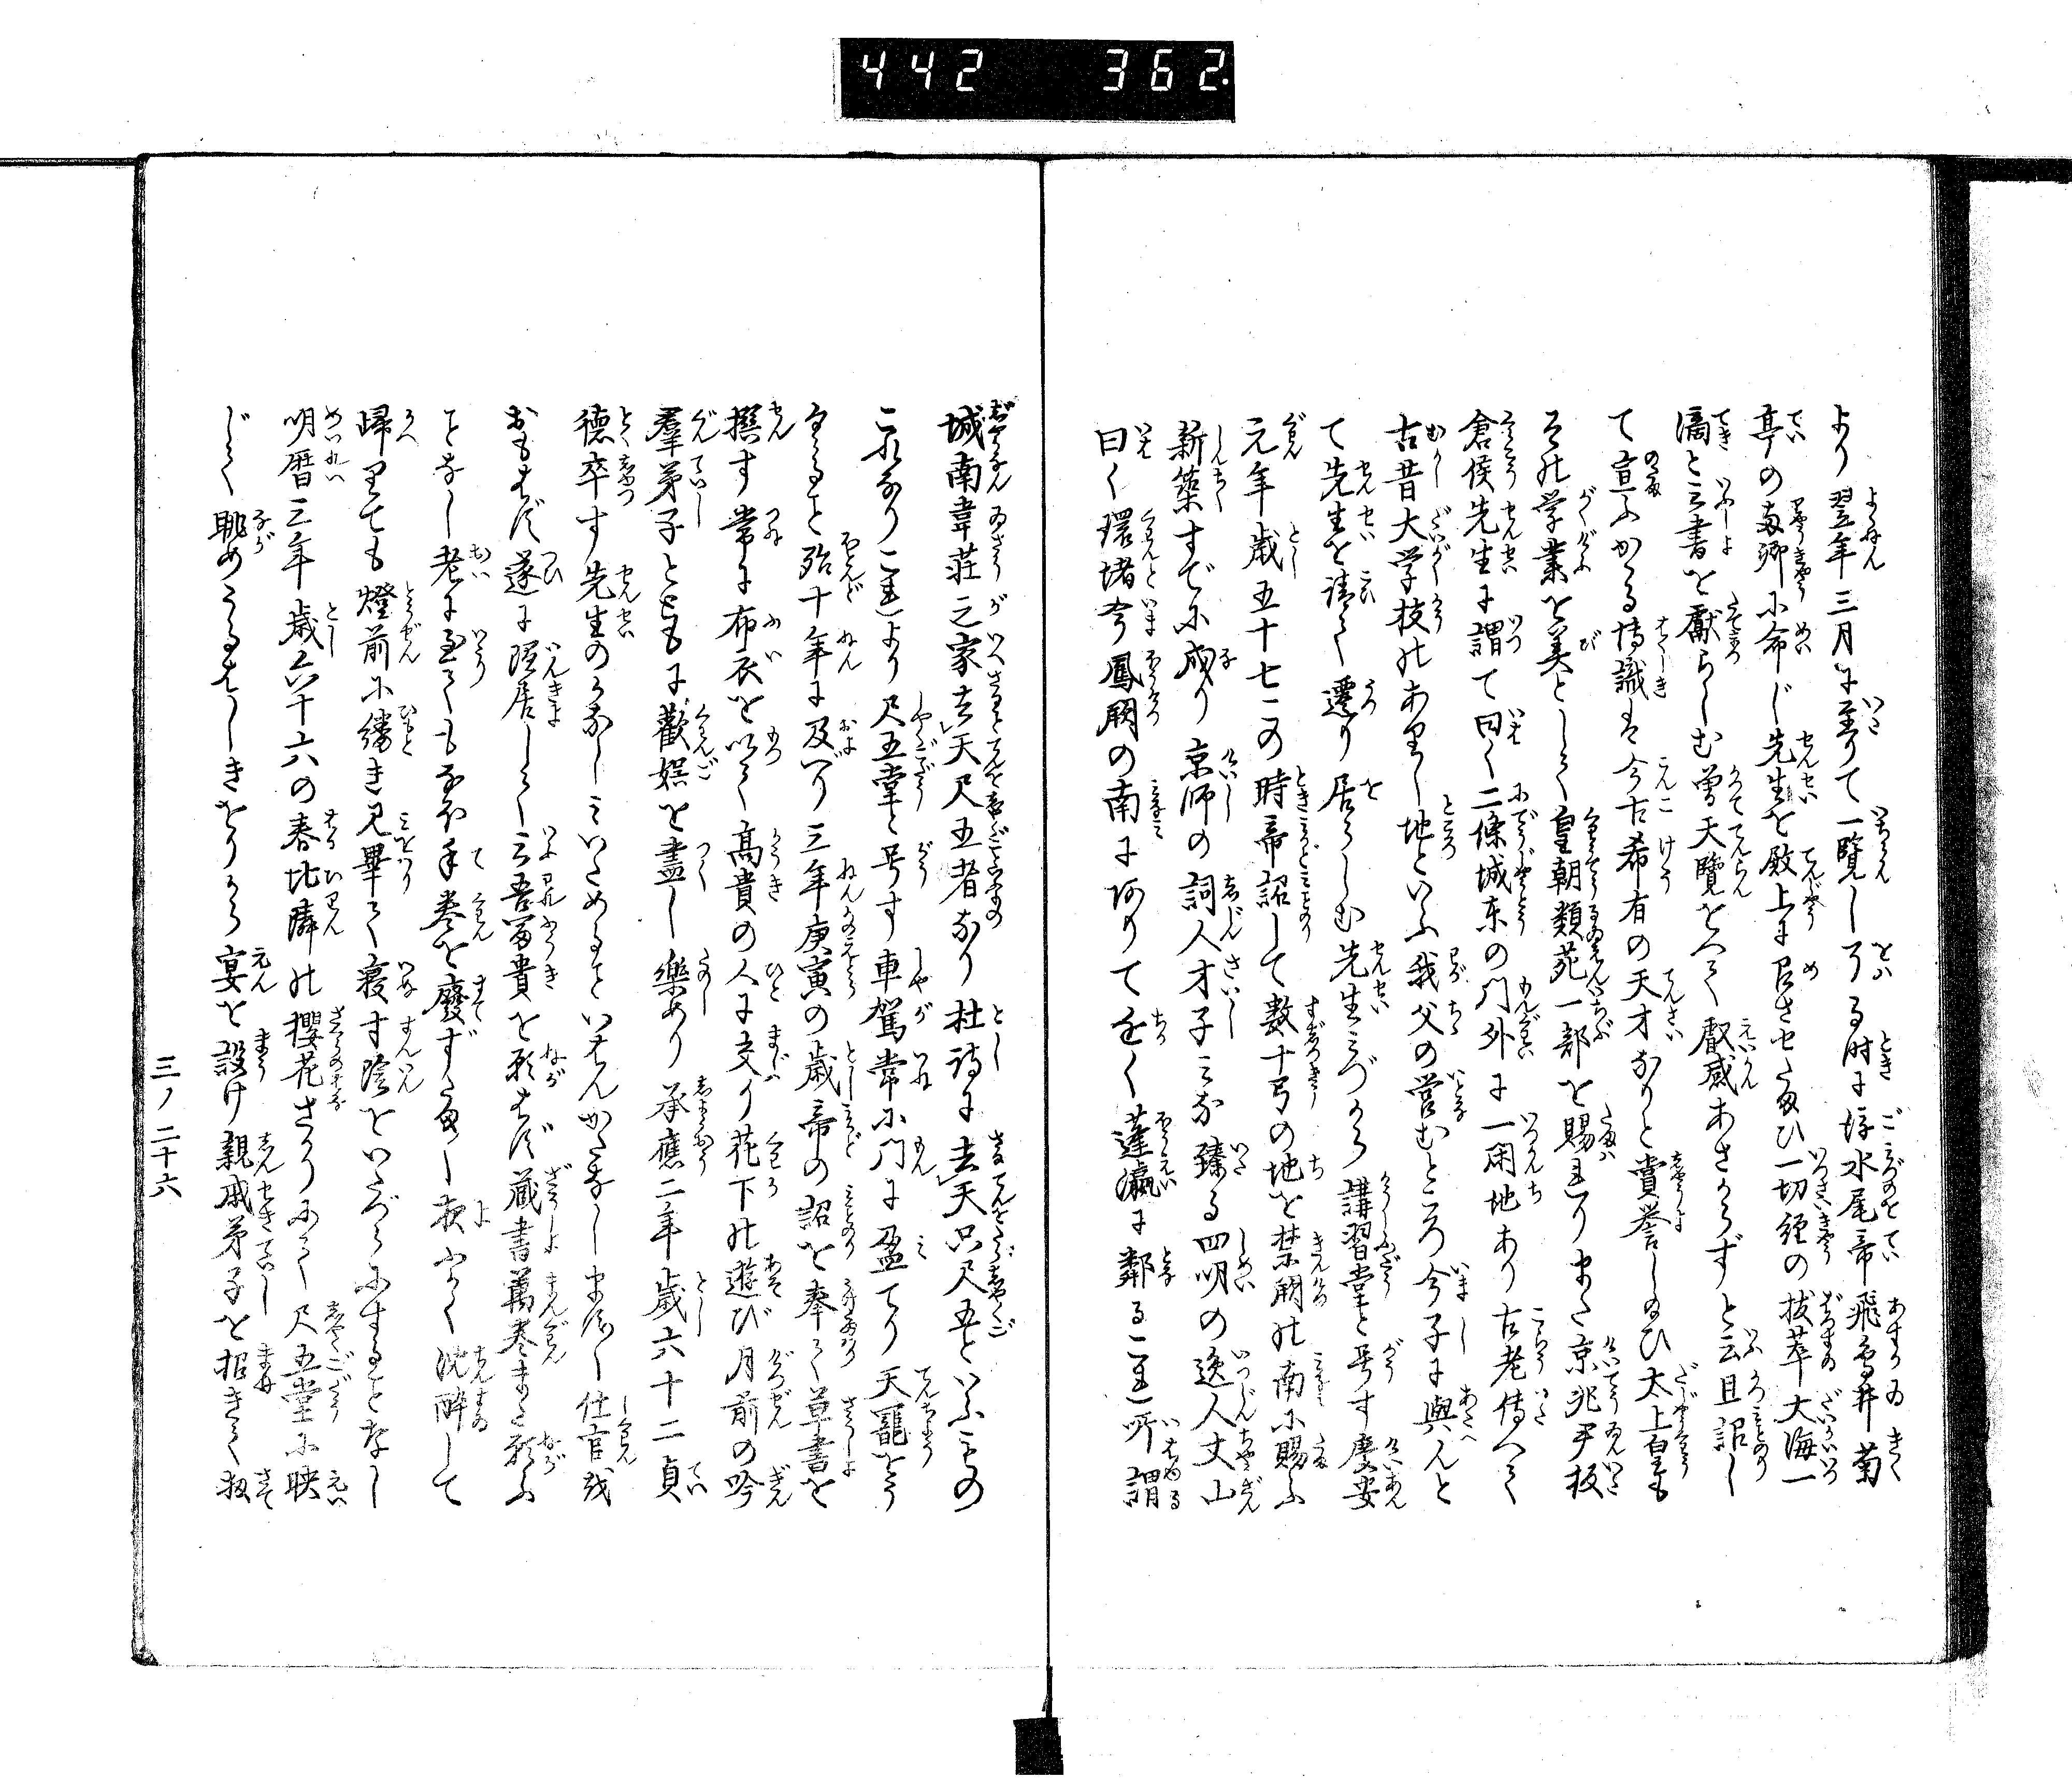 442 362.
より翌年三月に至りて一覧し了る時に後水尾帝飛鳥井菊
亭の両卿に命じ先生を殿上に召させ給ひ一切経の抜萃大海一
滴と云書を献らしむ曾天覧をへて叡感あさからずと云且詔し
て宣ふかゝる博識は今古希有の天才なりと賞誉し給ひ太上皇も
その学業を美として皇朝類苑一部を賜はりまた京兆尹板
倉侯先生に謂て曰く二條城東の門外に一閑地あり古老伝へて
古昔大学校のありし地といふ我父の営むところ今子に與んと
て先生を請て遷り居らしむ先生みづから講習堂と号す慶安
元年歳五十七この時帝詔して数十弓の地を禁闕の南に賜ふ
新築すでに成り京師の詞人才子みな臻る四明の逸人丈山
曰く環堵今鳳闕の南に阿りて近く蓬瀛に鄰ると所謂
城南韋荘之家去天尺五者なり杜詩に去天只尺五といふもの
これなりこれより尺五堂と号す車駕常に門に盈てり天寵をう
くること殆十年に及べり三年庚寅の歳帝の詔を奉て草書を
撰す常に布衣を以て高貴の人に交り花下の遊び月前の吟
羣弟子とともに歓娯を盡し樂めり承應二年歳六十二貞
徳卒す先生のかなしみいためることいはんかたなしまた仕官我
おもはず遂に隠居して云吾冨貴を願はず蔵書萬巻また願ふ
ことなし老に至ても猶手巻を廢ず給し夜ふかく沈酔して
歸りても燈前に繙き見畢て寝す陰をいたづらにすることなし
明暦三年歳六十六の春比隣の櫻花さかりにして尺五堂に映
じて眺めうるはしきをりから宴を設け親戚弟子を招きて扨
三ノ二十六